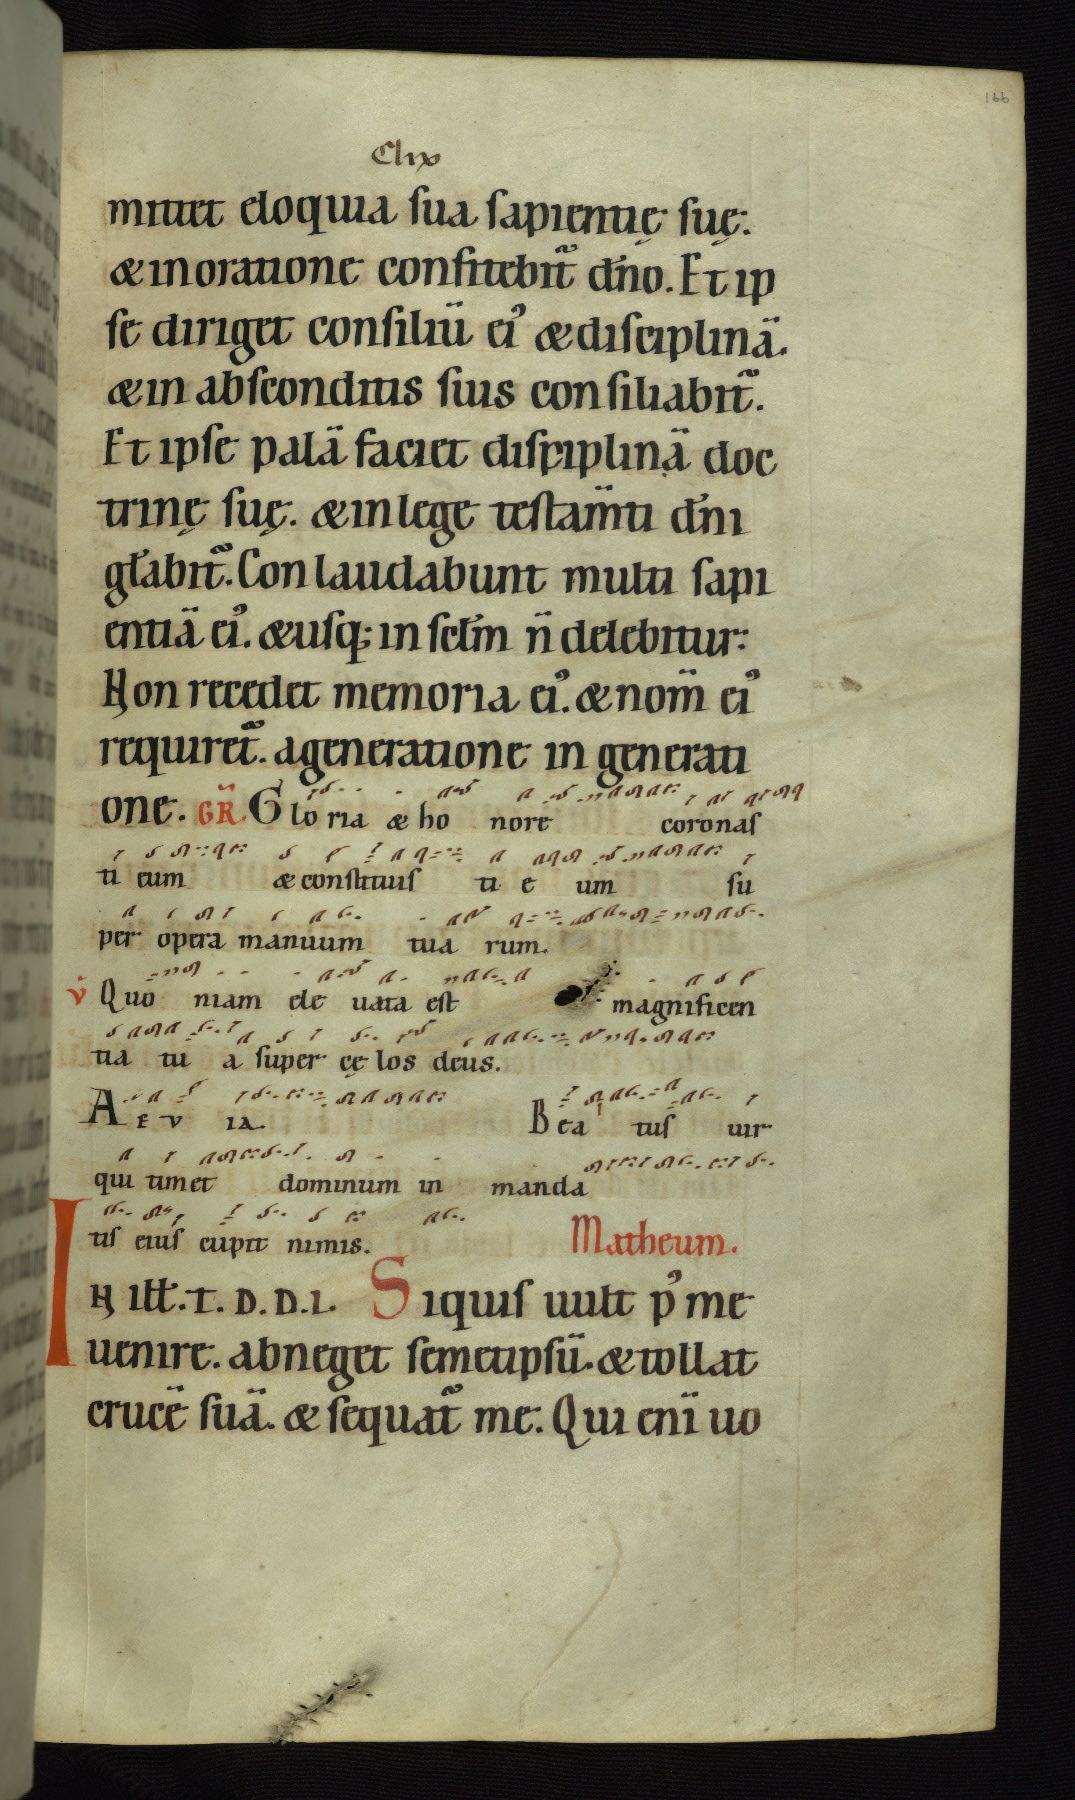 166
Clix
mittet eloquia sua sapientię suę.
& in oratione confitebit᷑ dn̄o. Et ip
se diriget consiliū ei᾽ & disciplinā.
& in absconditis suis consiliabit᷑.
Et ipse palā faciet disciplinā doc
trinę suę. & in lege testam̄ti dn̄i
gl̄abit᷑. Conlaudabunt multi sapi
entiā ei᾽. & usq; in sc̄lm n̄ delebitur:
Non recedet memoria ei᾽. & nom̄ ei᾽
requiret᷑. a generatione in generati
one. GR̄. Gloria & honore coronas
ti eum & constituis ti e um su
per opera manuum tua rum.
v̇ Quo niam ele uata est magnificen
tia tu a super cę los deus.
A E V IA. Bea tus uir
qui timet dominum in manda
tis eius cupit nimis. Matheum.
IN ILL̄. T. D. D. I. Siquis uult p᾽ me
uenire. abneget semetipsū. & tollat
crucē suā. & sequat᷑ me. Qui enī uo